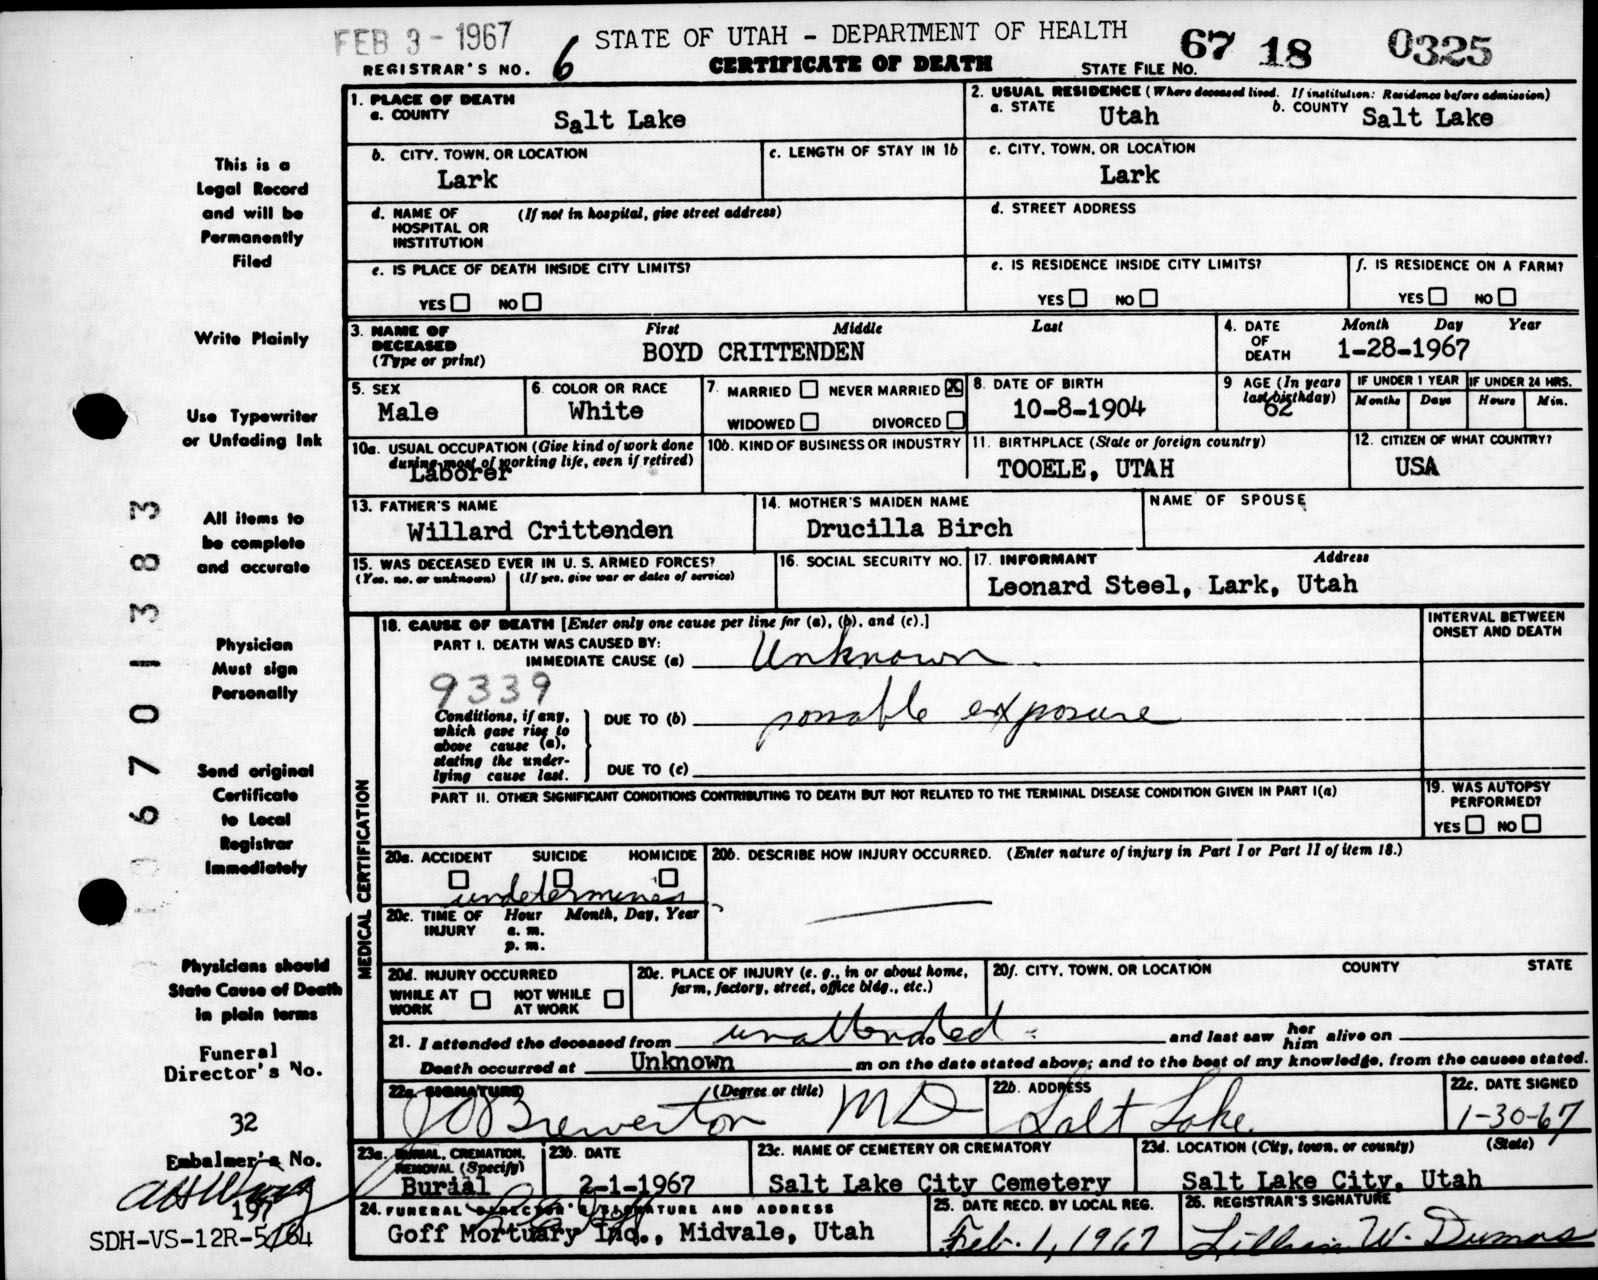 FEB 3 - 1967
STATE OF UTAH - DEPARTMENT OF HEALTH
67 18 0325
REGISTRAR'S NO. 6
CERTIFICATE OF DEATH
STATE FILE NO.
1. PLACE OF DEATH
a. COUNTY
Salt Lake
2. USUAL RESIDENCE (Where deceased lived. If institution: Residence before admission)
a. STATE Utah
b. COUNTY Salt Lake
b. CITY, TOWN, OR LOCATION
Lark
c. LENGTH OF STAY IN 1b
c. CITY, TOWN, OR LOCATION
Lark
d. NAME OF HOSPITAL OR INSTITUTION (If not in hospital, give street address)
d. STREET ADDRESS
e. IS PLACE OF DEATH INSIDE CITY LIMITS?
YES NO
e. IS RESIDENCE INSIDE CITY LIMITS?
YES NO
f. IS RESIDENCE ON A FARM?
YES NO
3. NAME OF DECEASED (Type or print)
First Middle Last
BOYD CRITTENDEN
4. DATE OF DEATH
Month Day Year
1-28-1967
5. SEX
Male
6. COLOR OR RACE
White
7. MARRIED NEVER MARRIED X
WIDOWED DIVORCED
8. DATE OF BIRTH
10-8-1904
9 AGE (In years last birthday)
62
IF UNDER 1 YEAR
Months Days
IF UNDER 24 HRS.
Hours Min.
10a. USUAL OCCUPATION (Give kind of work done during most of working life, even if retired)
Laborer
10b. KIND OF BUSINESS OR INDUSTRY
11. BIRTHPLACE (State or foreign country)
TOOELE, UTAH
12. CITIZEN OF WHAT COUNTRY?
USA
13. FATHER'S NAME
Willard Crittenden
14. MOTHER'S MAIDEN NAME
Drucilla Birch
NAME OF SPOUSE
15. WAS DECEASED EVER IN U. S. ARMED FORCES?
(Yes, no, or unknown) (If yes, give war or dates of service)
16. SOCIAL SECURITY NO.
17. INFORMANT Address
Leonard Steel, Lark, Utah
MEDICAL CERTIFICATION
18. CAUSE OF DEATH [Enter only one cause per line for (a), (b), and (c).]
INTERVAL BETWEEN ONSET AND DEATH
PART I. DEATH WAS CAUSED BY:
IMMEDIATE CAUSE (a) Unknown
9339
Conditions, if any, which gave rise to above cause (a), stating the underlying cause last.
DUE TO (b) possable exposure
DUE TO (c)
PART II. OTHER SIGNIFICANT CONDITIONS CONTRIBUTING TO DEATH BUT NOT RELATED TO THE TERMINAL DISEASE CONDITION GIVEN IN PART I(a)
19. WAS AUTOPSY PERFORMED?
YES NO
20a. ACCIDENT SUICIDE HOMICIDE
undetermined
20b. DESCRIBE HOW INJURY OCCURRED. (Enter nature of injury in Part I or Part II of item 18.)
20c. TIME OF INJURY
Hour Month, Day, Year
a. m.
p. m.
20d. INJURY OCCURRED
WHILE AT WORK NOT WHILE AT WORK
20e. PLACE OF INJURY (e. g., in or about home, farm, factory, street, office bldg., etc.)
20f. CITY, TOWN, OR LOCATION COUNTY STATE
21. I attended the deceased from unattended and last saw her him alive on
Death occurred at Unknown m on the date stated above; and to the best of my knowledge, from the causes stated.
22a. SIGNATURE (Degree or title)
Brewerton MD
22b. ADDRESS
Salt Lake
22c. DATE SIGNED
1-30-67
23a. BURIAL, CREMATION, REMOVAL (Specify)
Burial
23b. DATE
2-1-1967
23c. NAME OF CEMETERY OR CREMATORY
Salt Lake City Cemetery
23d. LOCATION (City, town, or county) (State)
Salt Lake City, Utah
24. FUNERAL DIRECTOR'S SIGNATURE AND ADDRESS
Goff Mortuary Inc., Midvale, Utah
25. DATE RECD. BY LOCAL REG.
Feb. 1, 1967
26. REGISTRAR'S SIGNATURE
Lillian W. Dumas
This is a
Legal Record
and will be
Permanently
Filed
Write Plainly
Use Typewriter
or Unfading Ink
All items to
be complete
and accurate
Physician
Must sign
Personally
Send original
Certificate
to Local
Registrar
Immediately
Physicians should
State Cause of Death
in plain terms
Funeral
Director's No.
32
Embalmer's No.
197
SDH-VS-12R-5/64
6701383